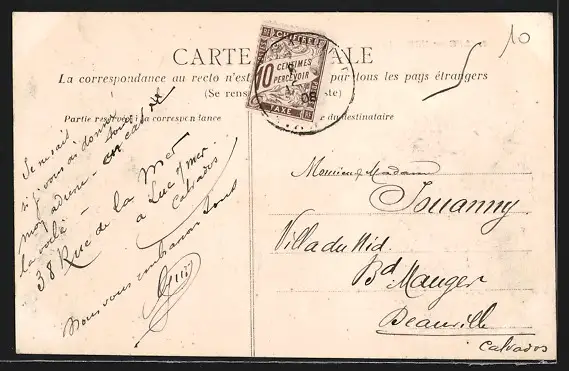 CARTE POSTALE
La correspondance au recto n'est par tous les pays étrangers
(Se rens
Partie réservée à la correspondance
e du destinataire
CHIFFRE
10 CENTIMES
A PERCEVOIR
TAXE
08
10
Je ne sais
si je vous ai donné
mon adresse - en cas
la voilà -
38 Rue de la Mer
a Luc s/ mer
Calvados
Nous vous embrassons tous
Monsieur Madame
Jouanny
Villa du Nid.
Bd Mauger
Deauville
Calvados